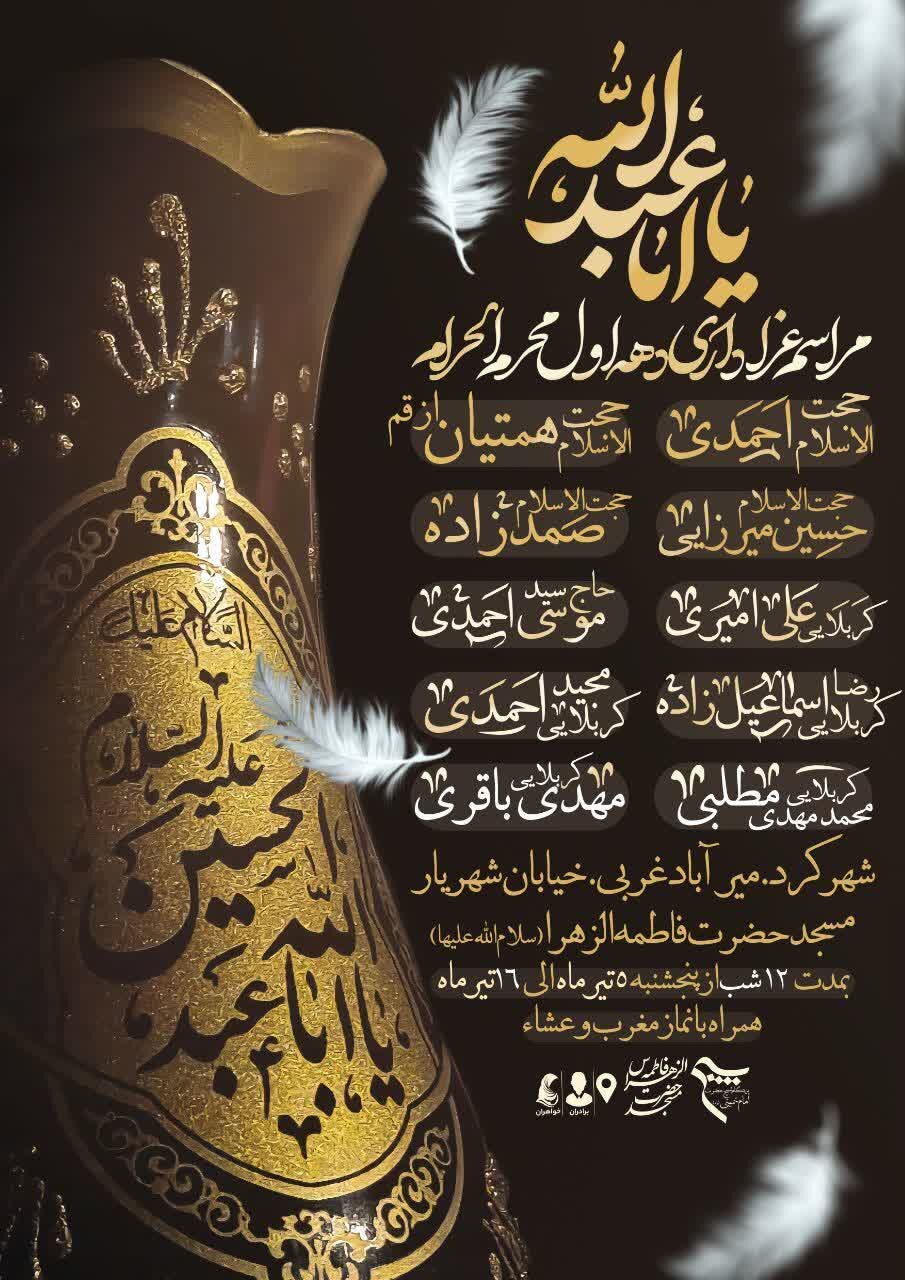 یا ابا عبدالله
مراسم عزاداری دهه اول محرم الحرام
حجت الاسلام احمدی
حجت الاسلام همتیان از قم
حجت الاسلام حسین میرزایی
حجت الاسلام صمدزاده
کربلایی علی امیری
حاج سید موسی احمدی
کربلایی رضا اسماعیل زاده
کربلایی مجید احمدی
کربلایی محمد مهدی مطلبی
کربلایی مهدی باقری
شهرکرد. میرآباد غربی. خیابان شهریار
مسجد حضرت فاطمه الزهرا (سلام الله علیها)
بمدت ۱۲ شب از پنجشنبه ۵ تیر ماه الی ۱۶ تیر ماه
همراه با نماز مغرب و عشاء
بسیج
مسجد حضرت فاطمه الزهرا س
برادران
خواهران
السلام علیک
یا ابا عبدالله الحسین علیه السلام